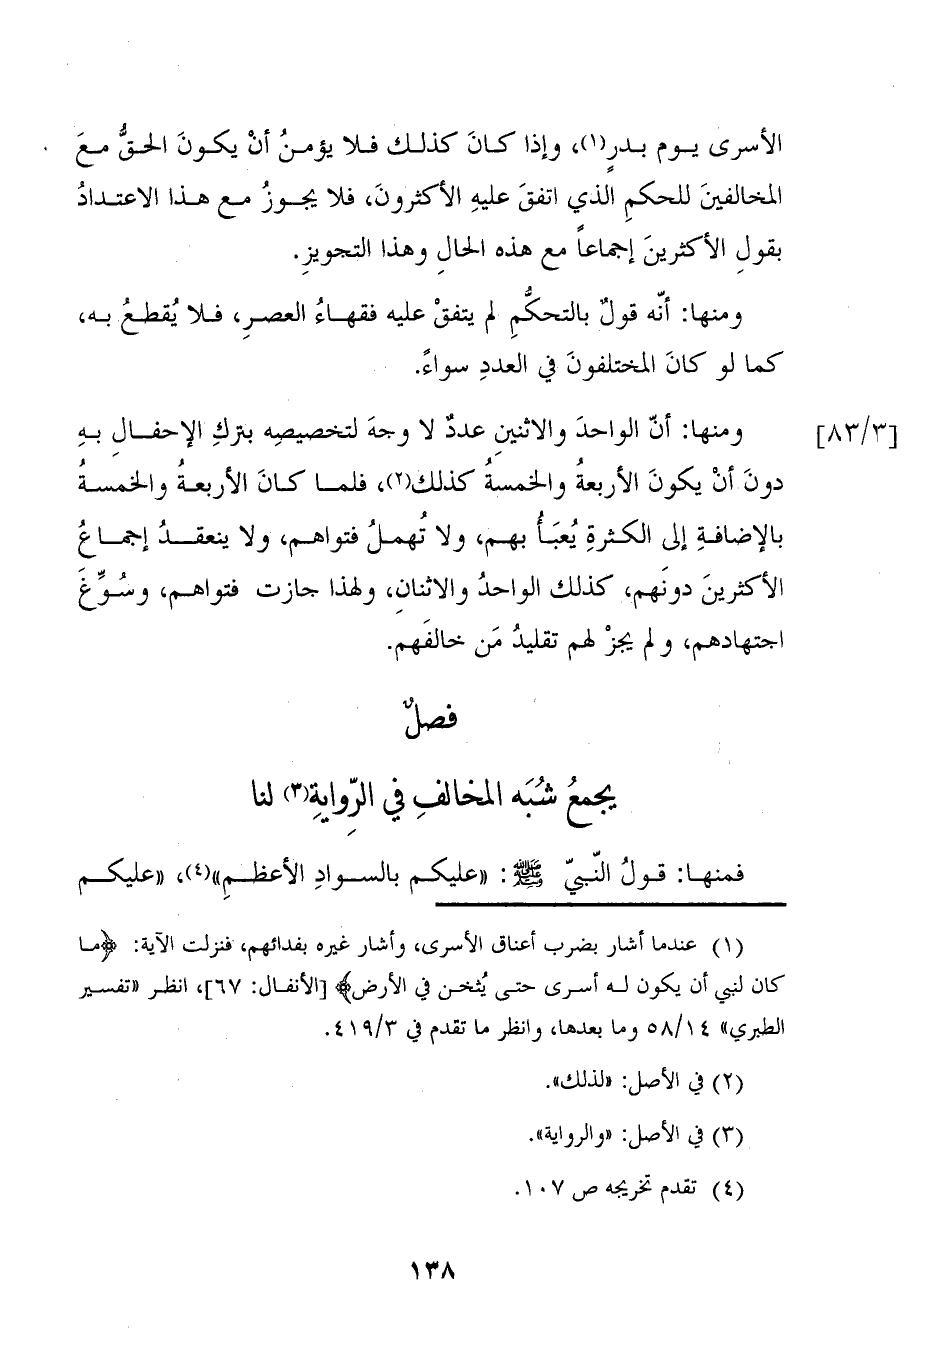 الأسرى يوم بدرٍ(١)، وإذا كانَ كذلك فلا يؤمنُ أنْ يكونَ الحقُّ معَ
المخالفينَ للحكمِ الذي اتفقَ عليهِ الأكثرونَ، فلا يجوزُ مع هذا الاعتدادُ
بقولِ الأكثرينَ إجماعاً مع هذه الحالِ وهذا التجويزِ.
ومنها: أنّه قولٌ بالتحكُّمِ لم يتفقْ عليه فقهاءُ العصرِ، فلا يُقطعُ به،
كما لو كانَ المختلفونَ في العددِ سواءً.
[٨٣/٣] ومنها: أنّ الواحدَ والاثنينِ عددٌ لا وجهَ لتخصيصِه بتركِ الإحفالِ بهِ
دونَ أنْ يكونَ الأربعةُ والخمسةُ كذلك(٢)، فلما كانَ الأربعةُ والخمسةُ
بالإضافةِ إلى الكثرةِ يُعبَأُ بهم، ولا تُهملُ فتواهم، ولا ينعقدُ إجماعُ
الأكثرينَ دونَهم، كذلك الواحدُ والاثنانِ، ولهذا جازت فتواهم، وسُوِّغَ
اجتهادهم، و لم يجزْ لهم تقليدُ مَن خالفَهم.
فصلٌ
يجمعُ شُبَه المخالفِ في الرّوايةِ(٣) لنا
فمنها: قولُ النّبيّ ﷺ: «عليكم بالسوادِ الأعظمِ»(٤)، «عليكم
(١) عندما أشار بضرب أعناق الأسرى، وأشار غيره بفدائهم، فنزلت الآية: ﴿ما
كان لنبي أن يكون له أسرى حتى يُثخن في الأرض﴾ [الأنفال: ٦٧]، انظر «تفسير
الطبري» ٥٨/١٤ وما بعدها، وانظر ما تقدم في ٤١٩/٣.
(٢) في الأصل: «لذلك».
(٣) في الأصل: «والرواية».
(٤) تقدم تخريجه ص ١٠٧.
١٣٨